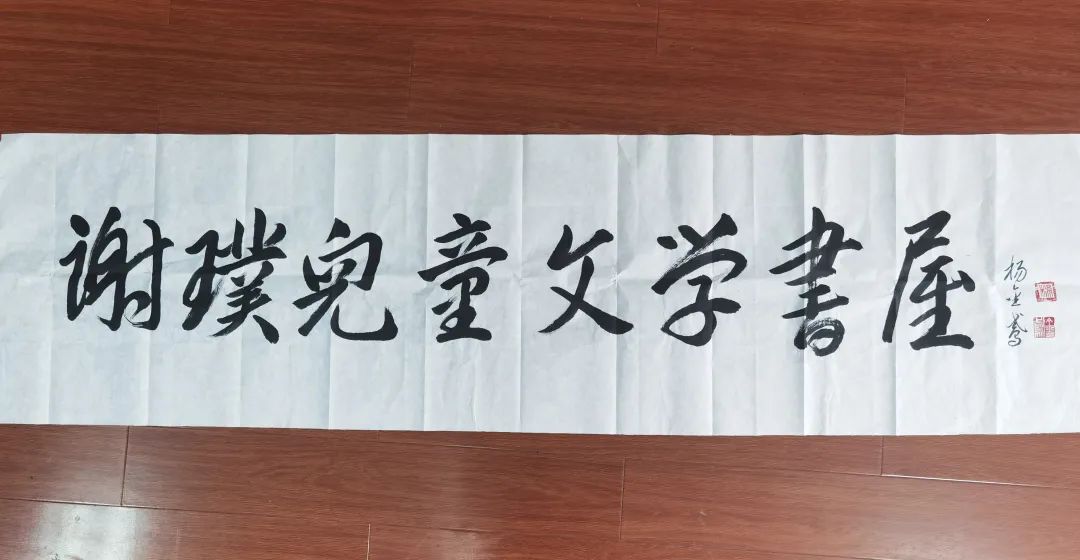 谢璞兒童文学書屋
杨金鸢